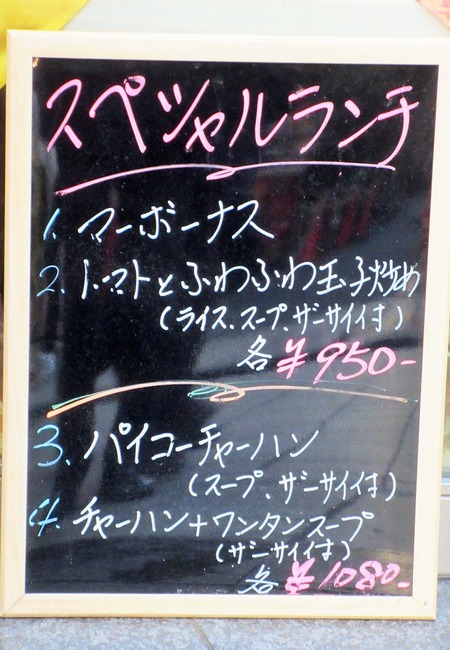 スペシャルランチ
1. マーボーナス
2. トマトとふわふわ玉子炒め
(ライス、スープ、ザーサイ付)
各 ¥950-
3. パイコーチャーハン
(スープ、ザーサイ付)
4. チャーハン+ワンタンスープ
(ザーサイ付)
各 ¥1080-